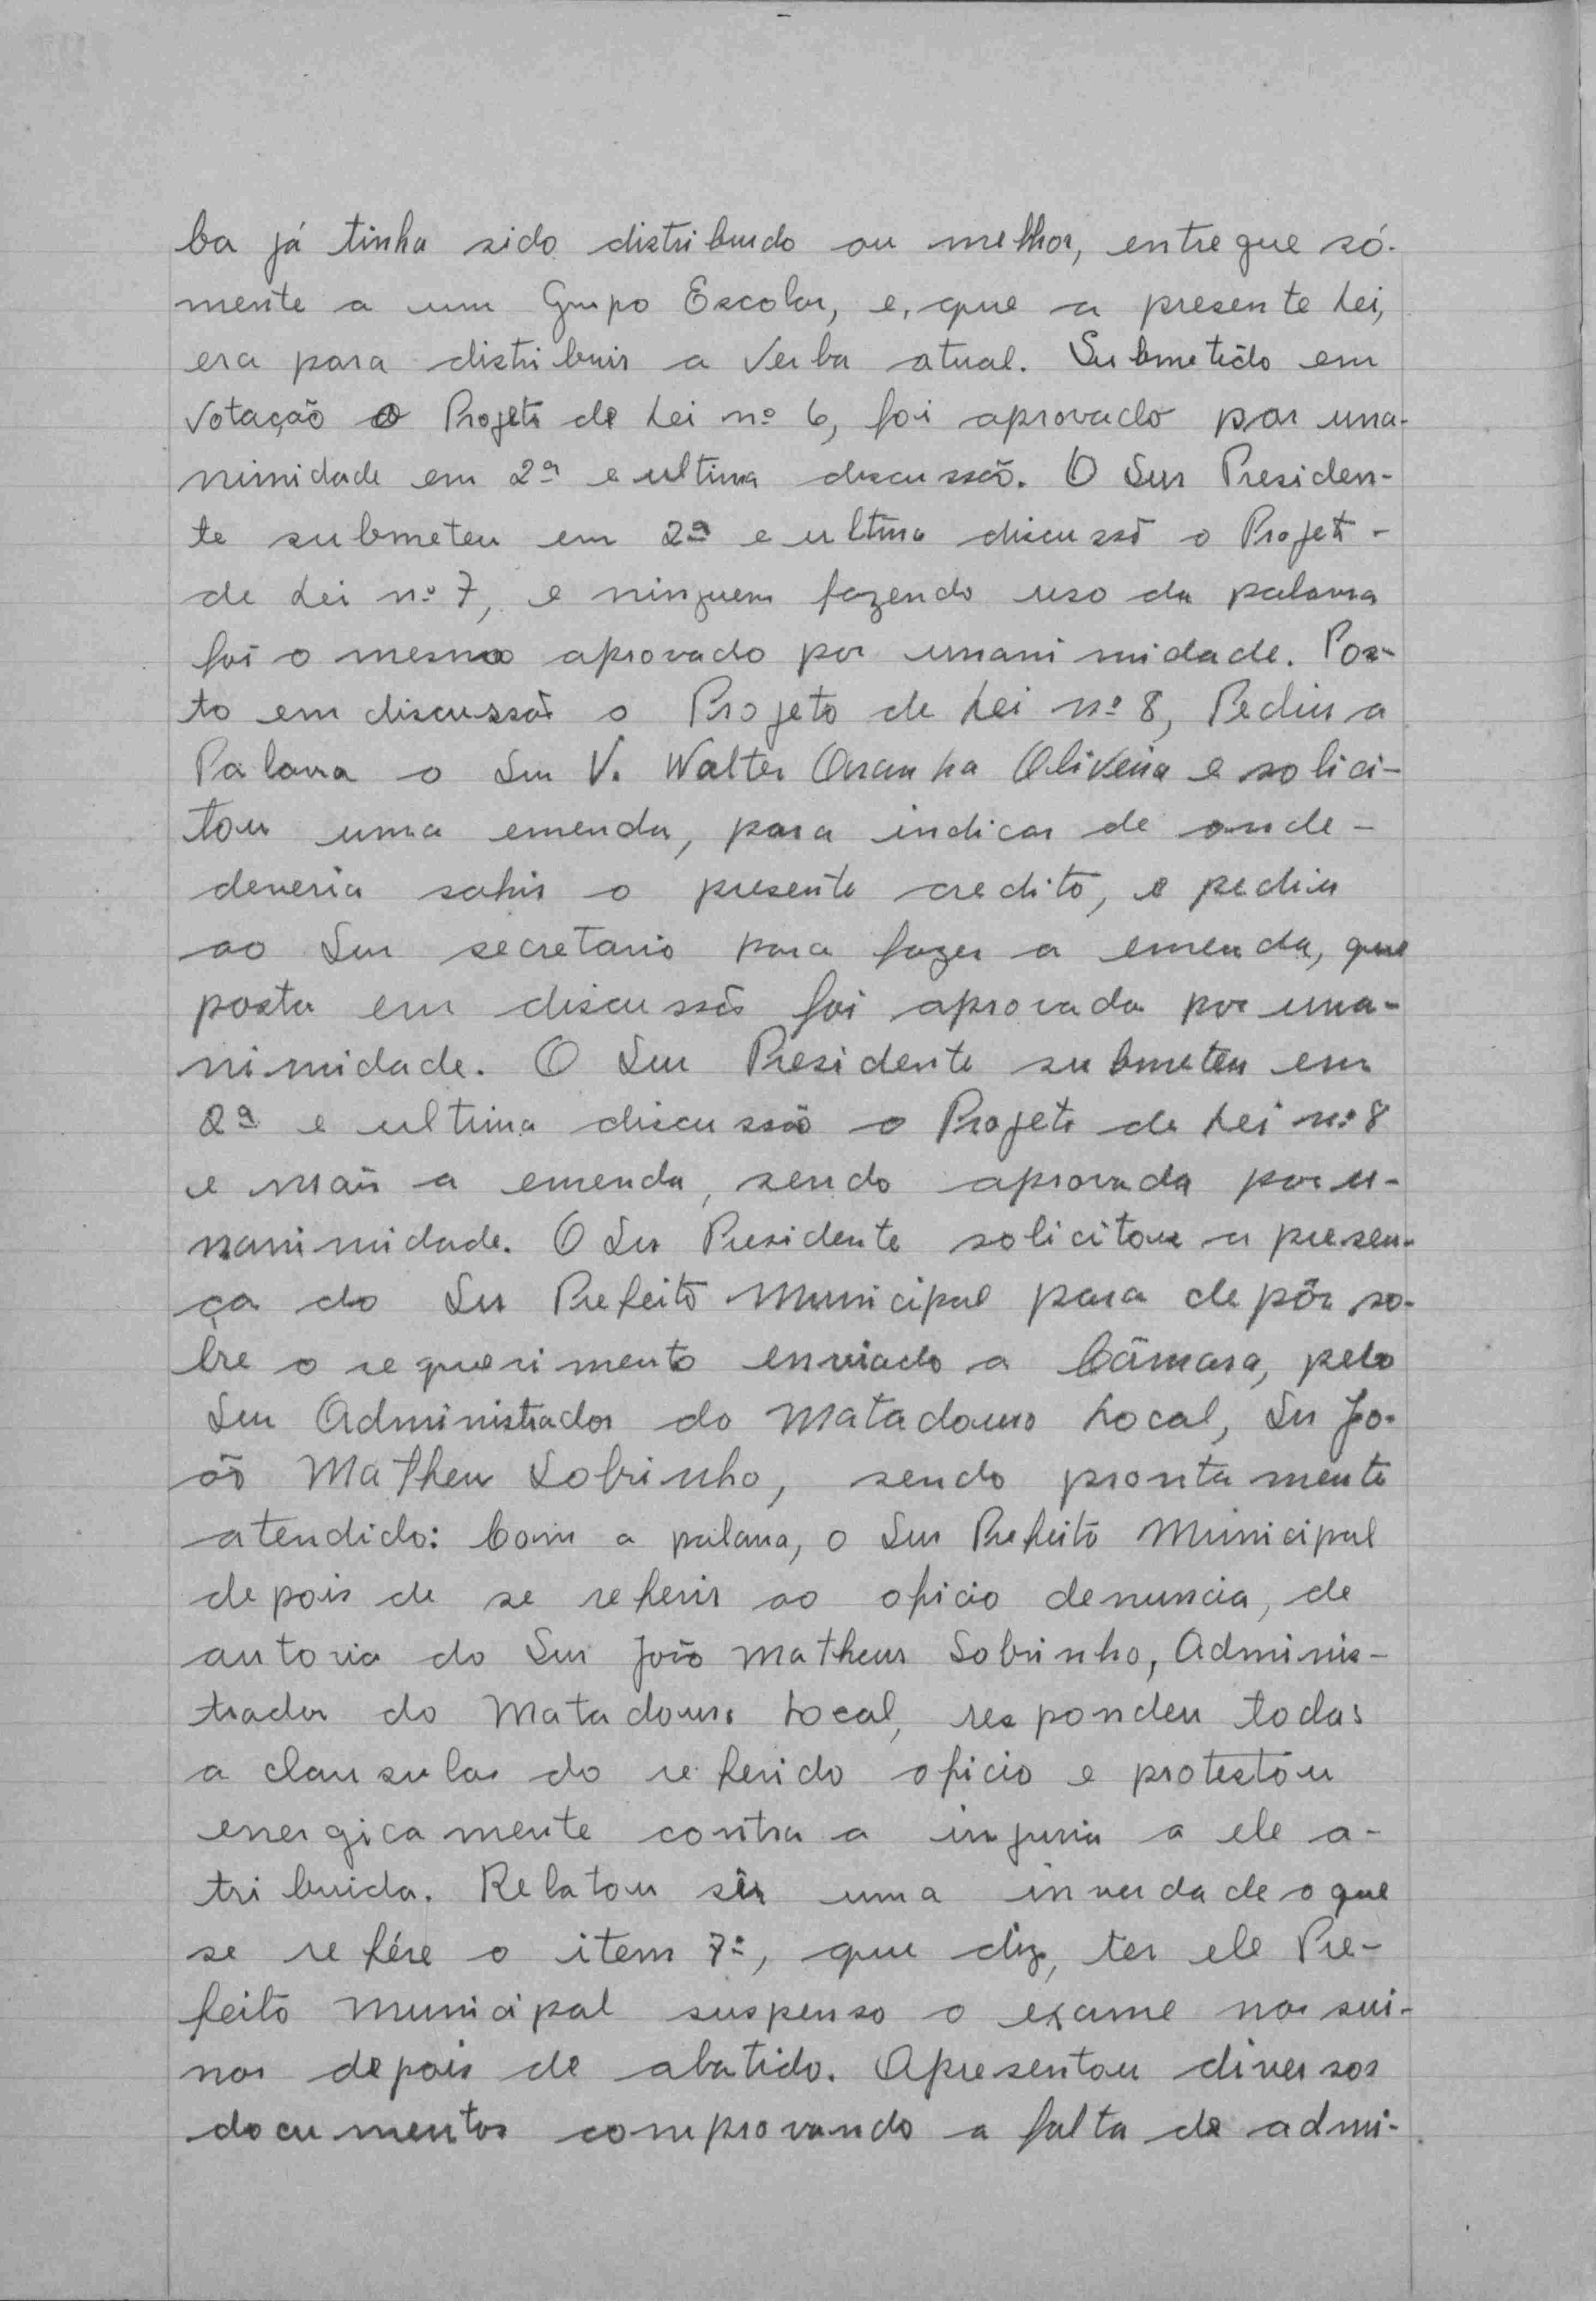 ba já tinha sido distribuido ou melhor, entregue só-
mente a um Grupo Escolar, e, que a presente Lei,
era para distribuir a Verba atual. Submetido em
votação o Projeto de Lei nº 6, foi aprovado por una-
nimidade em 2ª e ultima discussão. O Snr Presiden-
te submeteu em 2ª e ultima discussão o Projeto -
de Lei nº 7, e ninguem fazendo uso da palavra
foi o mesmo aprovado por unanimidade. Pos-
to em discussão o Projeto de Lei nº 8, Pediu a
Palavra o Snr V. Walter Aranha Oliveira e solici-
tou uma emenda, para indicar de onde -
deveria sahir o presente credito, e pediu
ao Snr secretario para fazer a emenda, que
posta em discussão foi aprovada por una-
nimidade. O Snr Presidente submeteu em
2ª e ultima discussão o Projeto de Lei nº 8
e mais a emenda, sendo aprovada por u-
nanimidade. O Snr Presidente solicitou a presen-
ça do Snr Prefeito Municipal para depôr so-
bre o requerimento enviado a Câmara, pelo
Snr Administrador do Matadouro Local, Snr Jo-
ão Matheu Sobrinho, sendo prontamente
atendido: Com a palavra, o Snr Prefeito Municipal
depois de se referir ao oficio denuncia, de
autoria do Snr João Matheus Sobrinho, Adminis-
trador do Matadouro Local, respondeu todas
a clausulas do referido oficio e protestou
energicamente contra a injuria a ele a-
tribuida. Relatou sêr uma inverdade o que
se refére o item 7º, que diz, ter ele Pre-
feito Municipal suspenso o exame nos sui-
nos depois de abatido. Apresentou diversos
documentos comprovando a falta de admi-